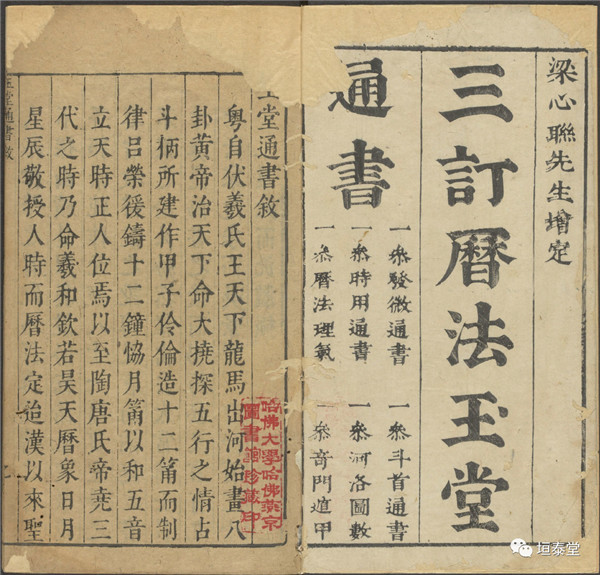 梁心聯先生增定
三訂曆法玉堂
通書
一叅發微通書
一叅時用通書
一叅曆法理氣
一叅斗首通書
一叅河洛圖數
一叅奇門遁甲
玉堂通書敘
粵自伏羲氏王天下龍馬出河始畫八
卦黃帝治天下命大撓探五行之情占
斗柄所建作甲子伶倫造十二筩而制
律呂榮猨鑄十二鐘協月筩以和五音
立天時正人位焉以至陶唐氏帝堯三
代之時乃命羲和欽若昊天曆象日月
星辰敬授人時而曆法定迨漢以來聖
玉堂通書敘
哈佛大學哈佛燕京
圖書館珍藏印
垣泰堂